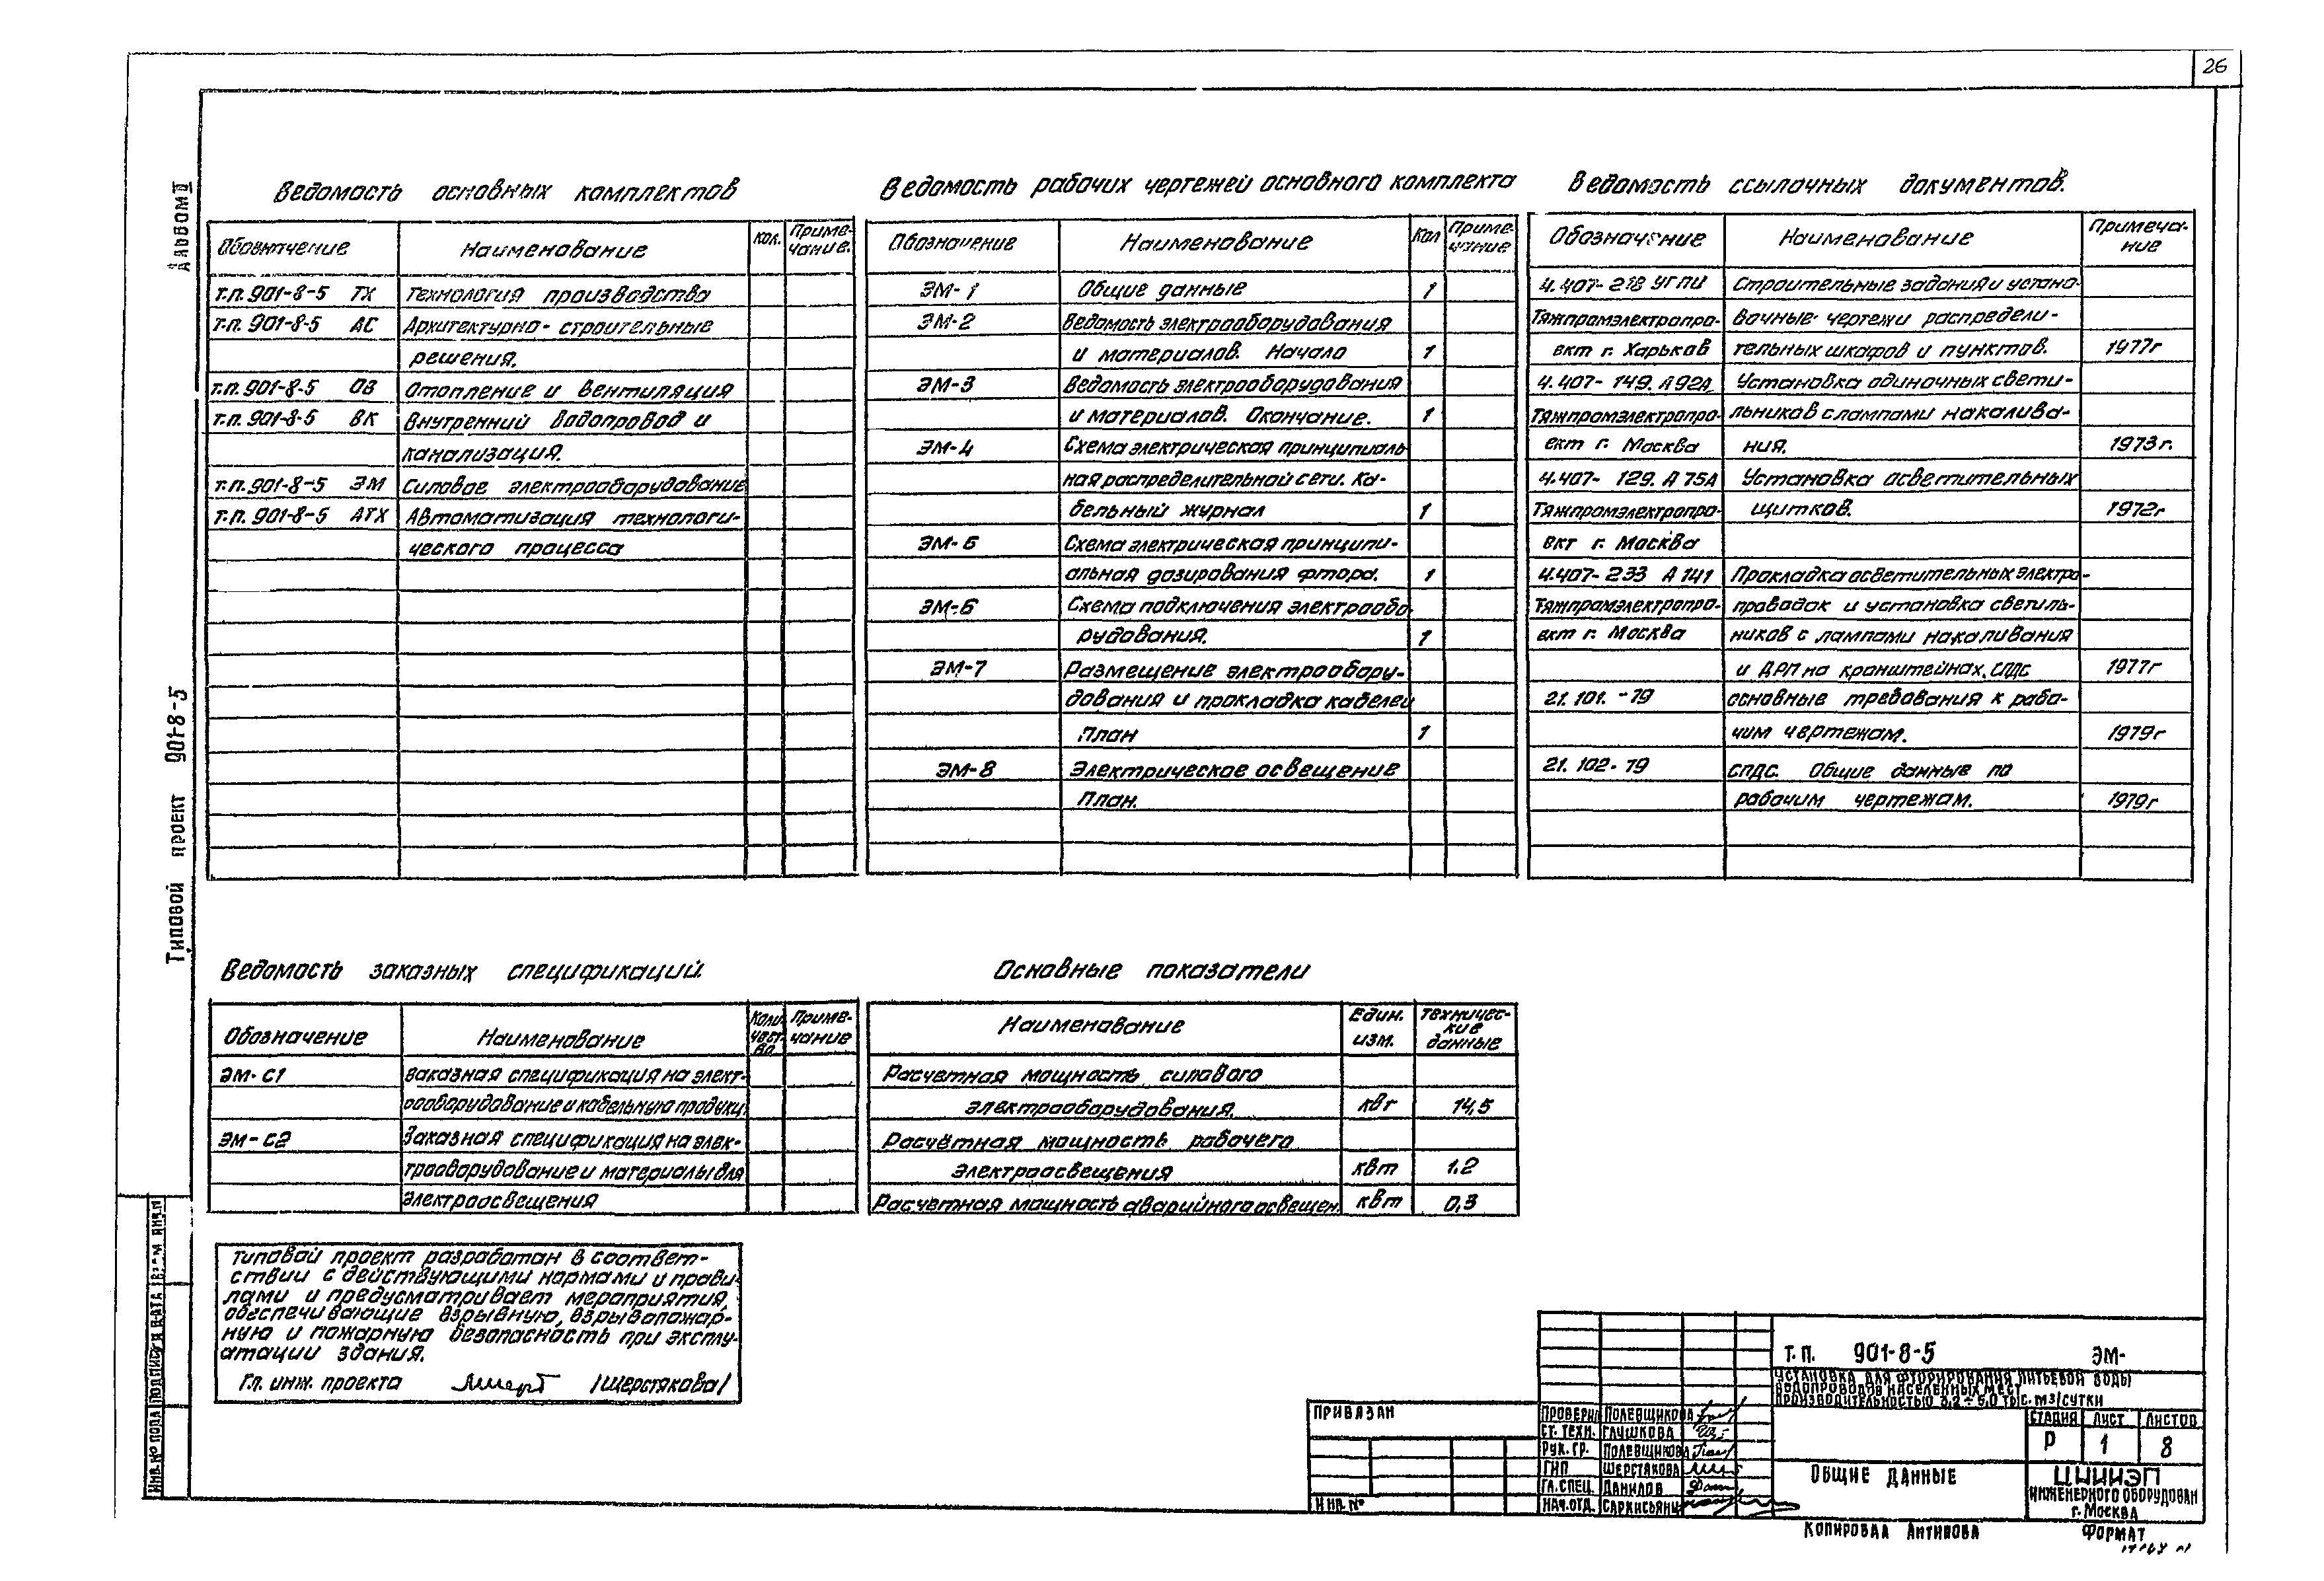 26
Альбом II
Типовой проект 901-8-5
Ведомость основных комплектов
Обозначение Наименование кол. Приме-
чание.
т.п. 901-8-5 ТХ Технология производства
т.п. 901-8-5 АС Архитектурно-строительные
решения.
т.п. 901-8-5 ОВ Отопление и вентиляция
т.п. 901-8-5 ВК Внутренний водопровод и
канализация.
т.п. 901-8-5 ЭМ Силовое электрооборудование
т.п. 901-8-5 АТХ Автоматизация технологи-
ческого процесса
Ведомость рабочих чертежей основного комплекта
Обозначение Наименование Кол Приме-
чание
ЭМ-1 Общие данные 1
ЭМ-2 Ведомость электрооборудования
и материалов. Начало 1
ЭМ-3 Ведомость электрооборудования
и материалов. Окончание. 1
ЭМ-4 Схема электрическая принципиаль
ная распределительной сети. Ка-
бельный журнал 1
ЭМ-5 Схема электрическая принципи-
альная дозирования фтора. 1
ЭМ-6 Схема подключения электрообо
рудования. 1
ЭМ-7 Размещение электрообору-
дования и прокладка кабелей
План 1
ЭМ-8 Электрическое освещение
План.
Ведомость ссылочных документов.
Обозначение Наименование Примеча-
ние
4.407-218 УГПИ Строительные задания и устано-
Тяжпромэлектропро- вочные чертежи распредели-
ект г. Харьков тельных шкафов и пунктов. 1977г
4.407-149. А92А Установка одиночных свети-
Тяжпромэлектропро- льников с лампами накалива-
ект г. Москва ния. 1973г.
4.407-129. А75А Установка осветительных
Тяжпромэлектропро- щитков. 1972г
ект г. Москва
4.407-233 А141 Прокладка осветительных электро-
Тяжпромэлектропро- проводок и установка светиль-
ект г. Москва ников с лампами накаливания
и ДРЛ на кронштейнах. СПДС 1977г
21.101.-79 основные требования к рабо-
чим чертежам. 1979г
21.102-79 СПДС. Общие данные по
рабочим чертежам. 1979г
Ведомость заказных спецификаций.
Обозначение Наименование Коли
чест-
во Приме-
чание
ЭМ-С1 Заказная спецификация на элект-
рооборудование и кабельную продукц.
ЭМ-С2 Заказная спецификация на элек-
трооборудование и материалы для
электроосвещения
Основные показатели
Наименование Един.
изм. Техничес-
кие
данные
Расчетная мощность силового
электрооборудования. квт 14,5
Расчётная мощность рабочего
электроосвещения квт 1.2
Расчетная мощность аварийного освещен. квт 0,3
Типовой проект разработан в соответ-
ствии с действующими нормами и прави-
лами и предусматривает мероприятия,
обеспечивающие взрывную, взрывопожар-
ную и пожарную безопасность при эксплу-
атации здания.
Гл. инж. проекта /Шерстякова/
ПРИВЯЗАН
ИНВ. №
ПРОВЕРИЛ ПОЛЕВЩИКОВА
СТ. ТЕХН. ГЛУШКОВА
РУК. ГР. ПОЛЕВЩИКОВА
ГИП ШЕРСТЯКОВА
ГЛ. СПЕЦ. ДАНИЛОВ
НАЧ. ОТД. САРКИСЬЯНЦ
Т. П. 901-8-5 ЭМ-
УСТАНОВКА ДЛЯ ФТОРИРОВАНИЯ ПИТЬЕВОЙ ВОДЫ
ВОДОПРОВОДОВ НАСЕЛЕННЫХ МЕСТ
ПРОИЗВОДИТЕЛЬНОСТЬЮ 3,2 ÷ 5,0 ТЫС. М3/СУТКИ
СТАДИЯ ЛИСТ ЛИСТОВ
Р 1 8
ОБЩИЕ ДАННЫЕ
ЦНИИЭП
ИНЖЕНЕРНОГО ОБОРУДОВАН
г. МОСКВА
КОПИРОВАЛ АНТИПОВА ФОРМАТ
ИНВ. № ПОДЛ ПОДПИСЬ И ДАТА ВЗАМ ИНВ.№